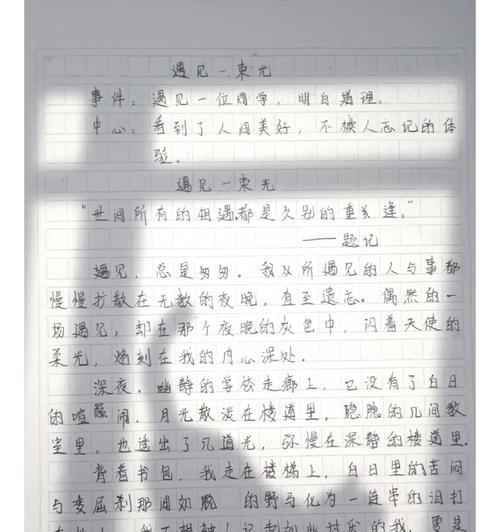 遇见一束光
事件：遇见一位同学，明白道理。
中心：看到了人间美好，不被人忘记的体
验。
遇见一束光
“世间所有的相遇都是久别的重逢。”
——题记
遇见，总是匆匆。我以所遇见的人与事都
慢慢扩散在无数的夜晚，直至遗忘。偶然的一
场遇见，却在那个夜晚的灰色中，闪着天使的
柔光，烙刻在我的内心深处。
深夜。幽静的学校走廊上，已没有了白日
的喧嚣闹。月光散淡在楼道里，隐隐的几间教
室里，也透出了几道光，弥慢在深静的楼道里。
背着书包，我走在楼梯上，白日里的苦闷
与委屈刹那间如脱 的野马化为一连串的泪打